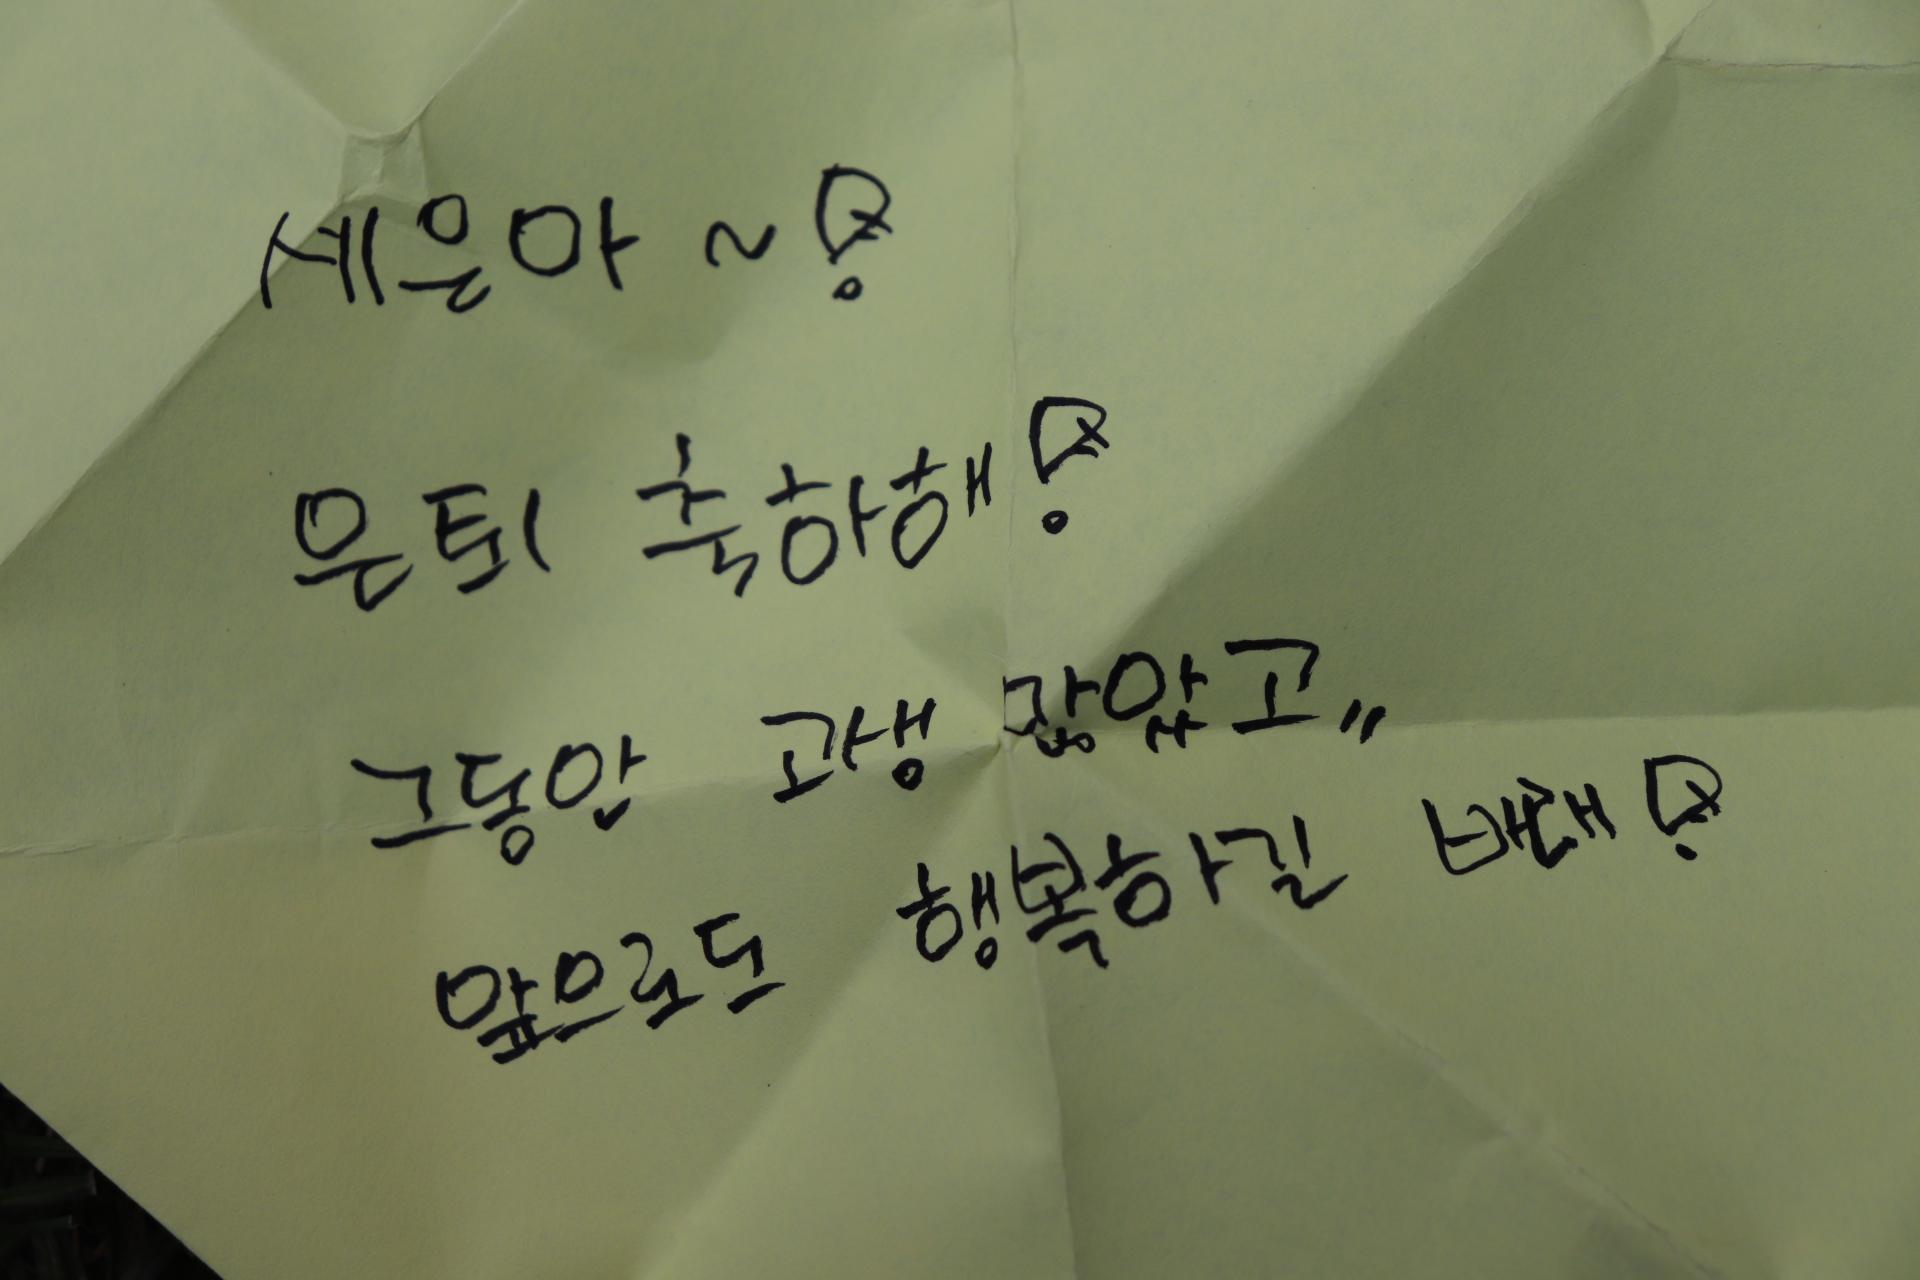 세은아~!
은퇴 축하해!
그동안 고생 많았고,,
앞으로도 행복하길 바래!